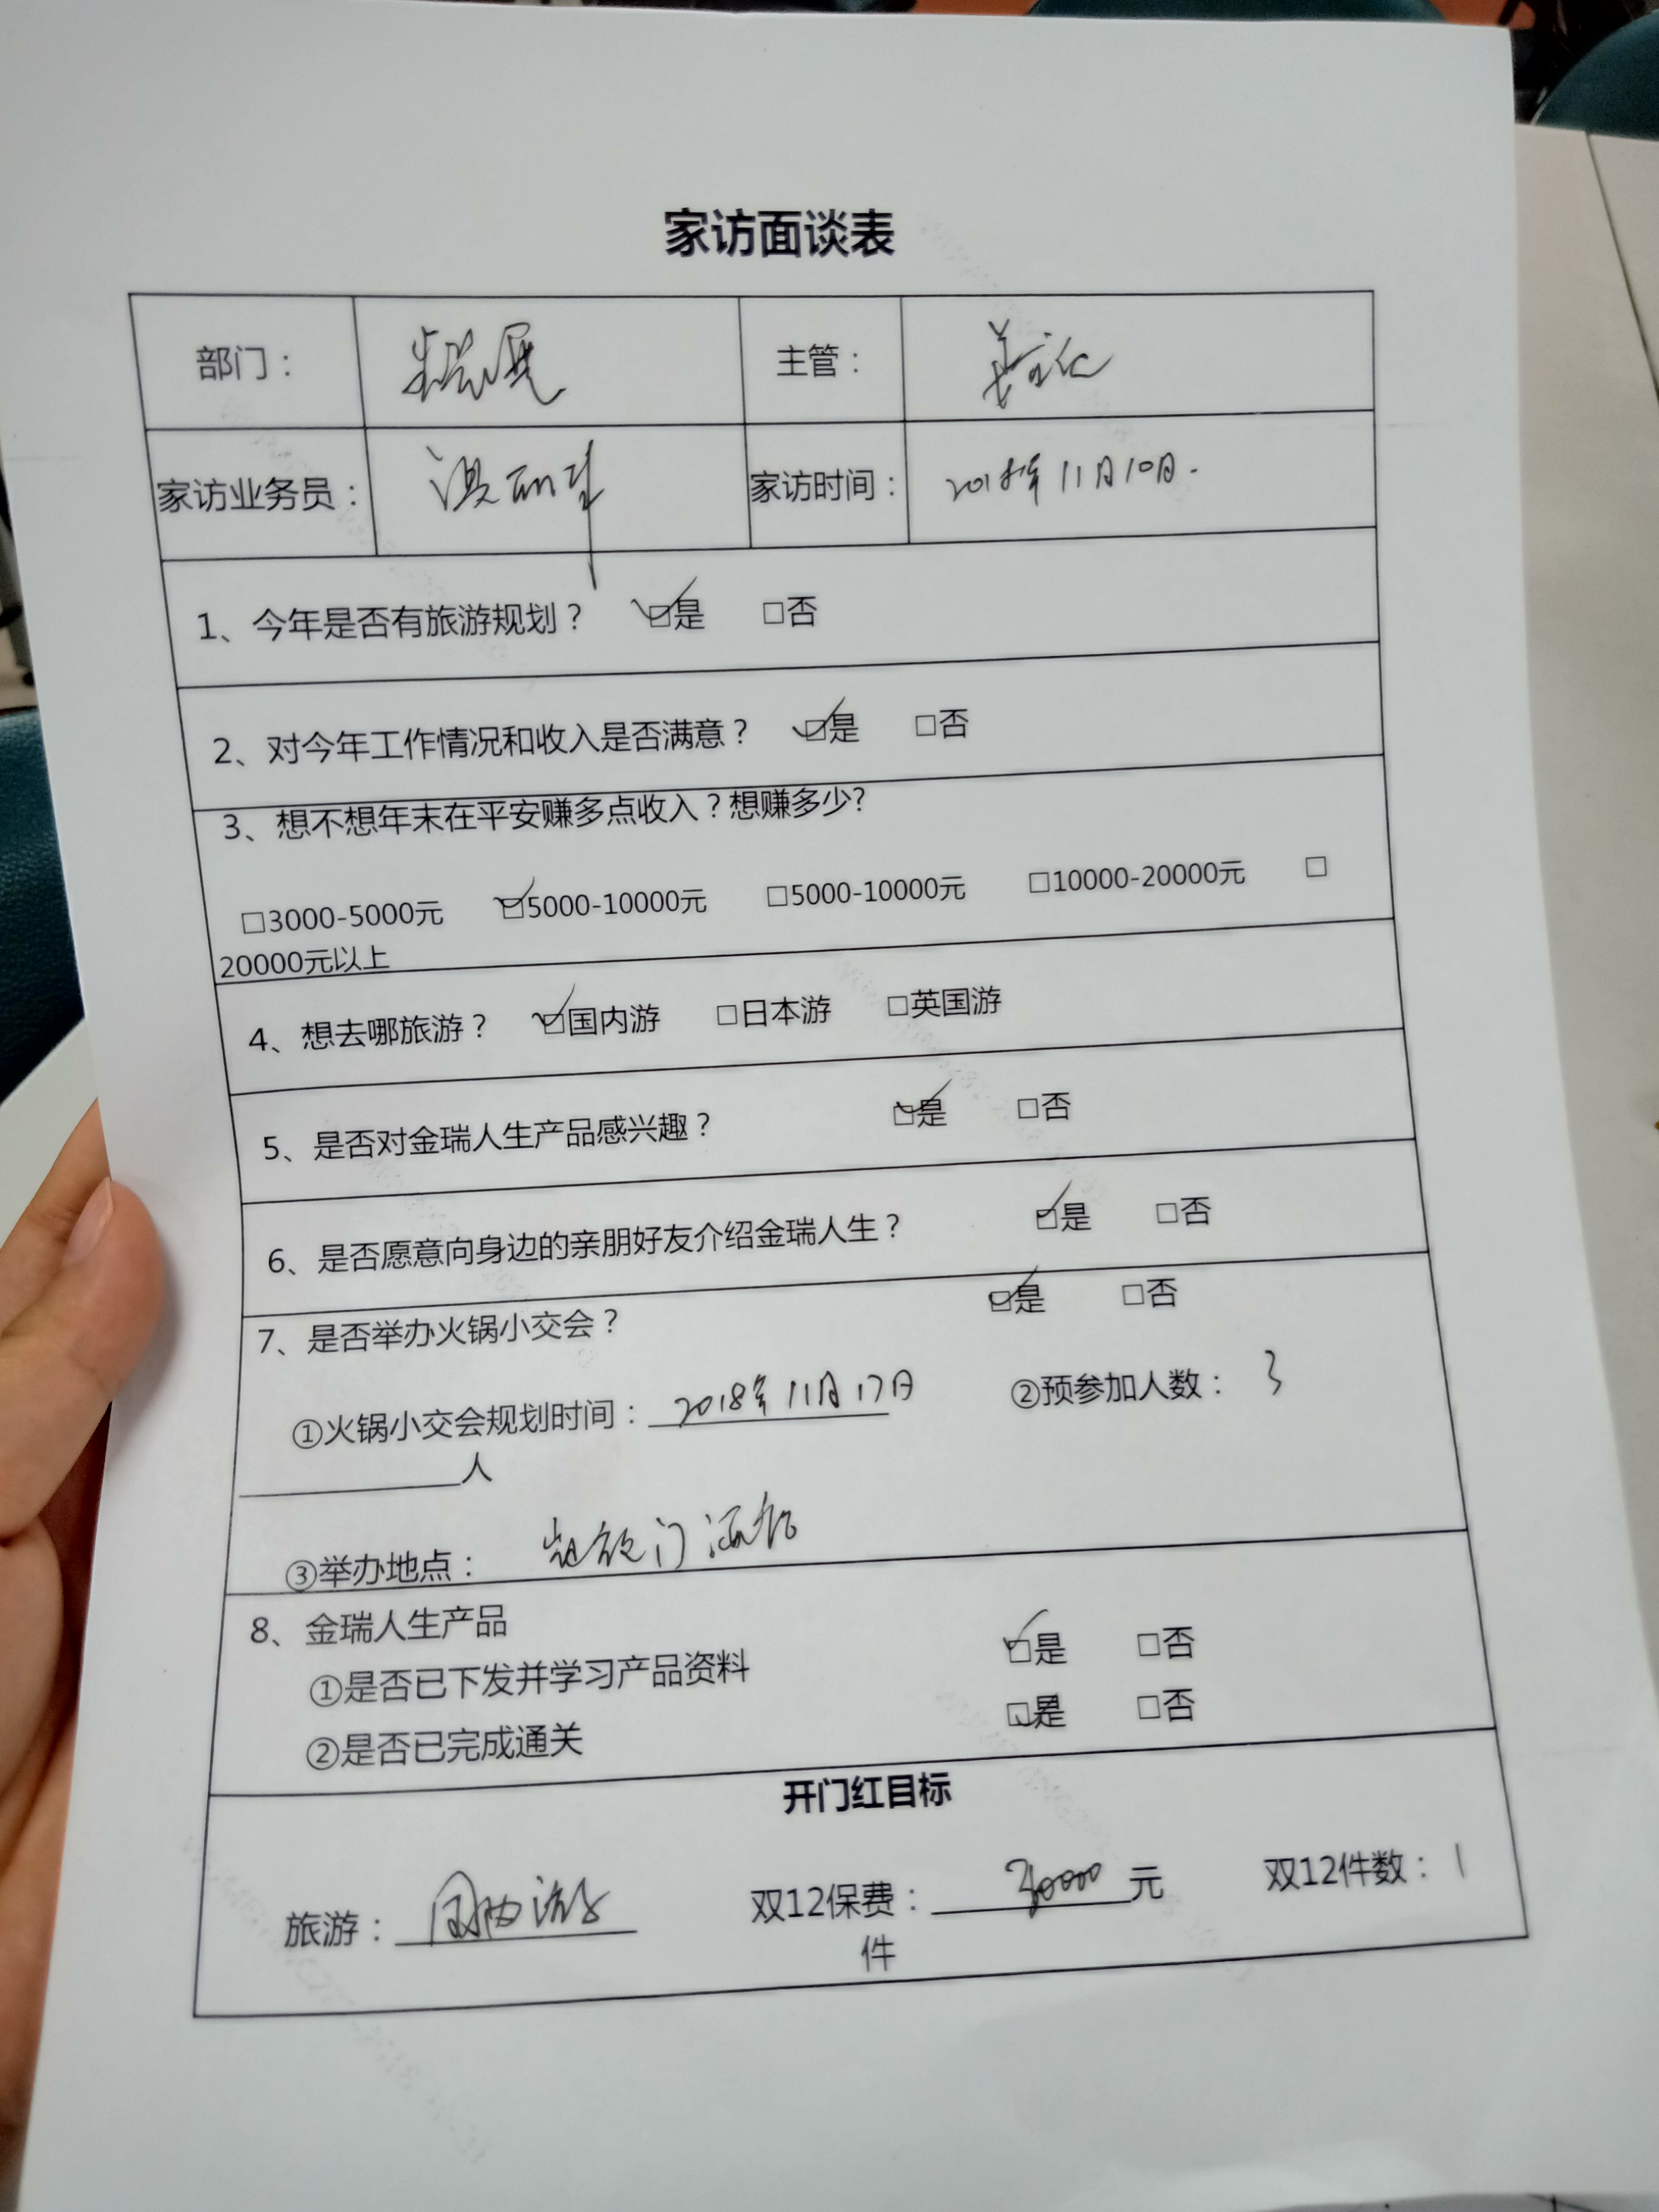 家访面谈表
部门：
主管：
家访业务员：
家访时间： 2018年11月10日.
1、今年是否有旅游规划？ ☑是 □否
2、对今年工作情况和收入是否满意？ ☑是 □否
3、想不想年末在平安赚多点收入？想赚多少?
□3000-5000元 ☑5000-10000元 □5000-10000元 □10000-20000元 □
20000元以上
4、想去哪旅游？ ☑国内游 □日本游 □英国游
5、是否对金瑞人生产品感兴趣？ ☑是 □否
6、是否愿意向身边的亲朋好友介绍金瑞人生？ ☑是 □否
7、是否举办火锅小交会？ ☑是 □否
①火锅小交会规划时间：2018年11月17日 ②预参加人数： 3
人
③举办地点：
8、金瑞人生产品
①是否已下发并学习产品资料 ☑是 □否
②是否已完成通关 ☑是 □否
开门红目标
旅游：国内游 双12保费：30000元 双12件数：1
件